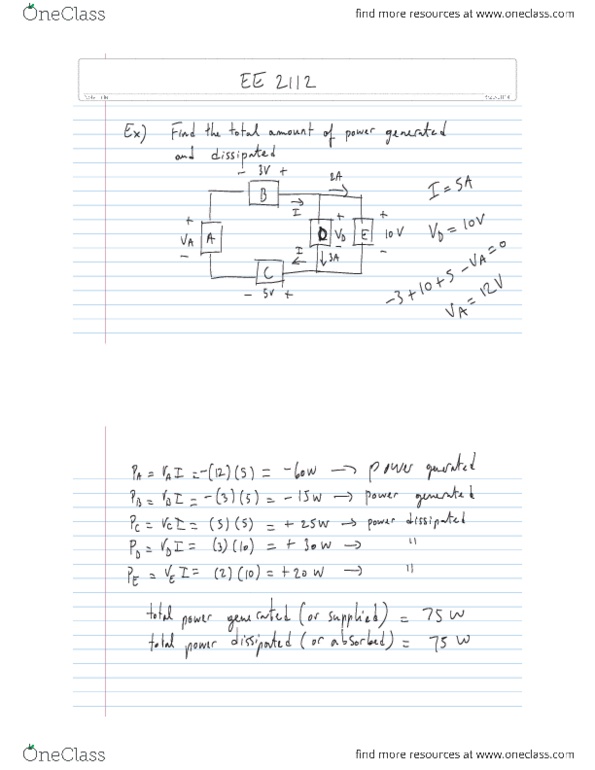 OneClass
find more resources at www.oneclass.com
EE 2112
Ex) Find the total amount of power generated
and dissipated
- 3V +
2A
B
I
I = 5A
+
VA
-
A
D
+
VD
-
E
+
10V
-
VD = 10V
I
3A
C
- 5V +
-3+10+5-VA=0
VA = 12V
PA = VAI = -(12)(5) = -60W → power generated
PB = VBI = -(3)(5) = -15W → power generated
PC = VCI = (5)(5) = +25W → power dissipated
PD = VDI = (3)(10) = +30W → "
PE = VEI = (2)(10) = +20W → "
total power generated (or supplied) = 75 W
total power dissipated (or absorbed) = 75 W
OneClass
find more resources at www.oneclass.com